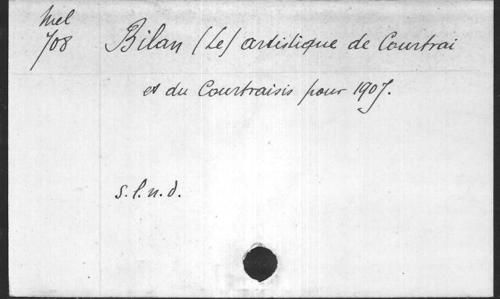 Mel
708
Bilan (Le) artistique de Courtrai
et du Courtraisis pour 1907.
s.l.n.d.